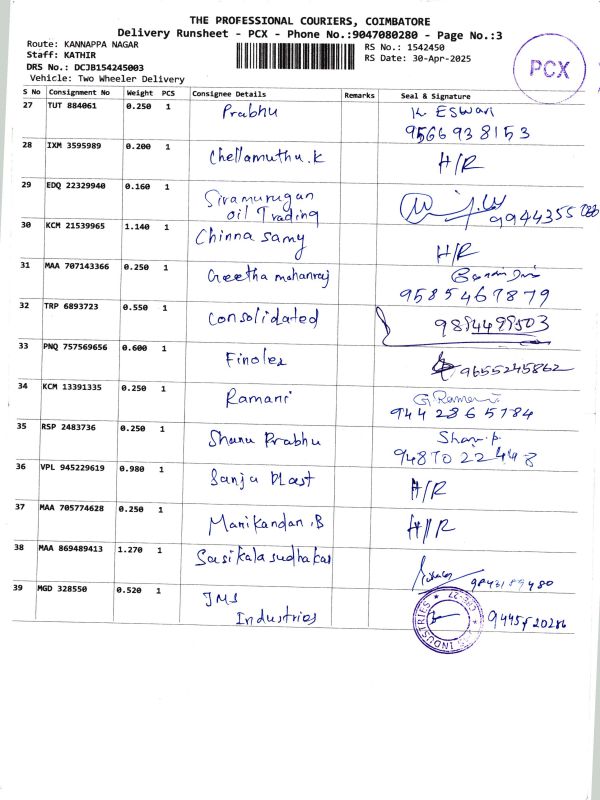 THE PROFESSIONAL COURIERS, COIMBATORE
Delivery Runsheet - PCX - Phone No.:9047080280 - Page No.:3
Route: KANNAPPA NAGAR
Staff: KATHIR
DRS No.: DCJB154245003
Vehicle: Two Wheeler Delivery
RS No.: 1542450
RS Date: 30-Apr-2025
PCX
S No Consignment No Weight PCS Consignee Details Remarks Seal & Signature
27 TUT 884061 0.250 1 Prabhu K ESWari
9566938153
28 IXM 3595989 0.200 1 Chellamuthu.K H/R
29 EDQ 22329940 0.160 1 Sivamurugan
oil Trading
30 KCM 21539965 1.140 1 Chinna Samy H/R
31 MAA 707143366 0.250 1 Geetha mohanraj
9585467879
32 TRP 6893723 0.550 1 Consolidated 9894499503
33 PNQ 757569656 0.600 1 Finolex 9655245862
34 KCM 13391335 0.250 1 Ramani G Ramani
9442865784
35 RSP 2483736 0.250 1 Shanu Prabhu Shan.p.
9487022448
36 VPL 945229619 0.980 1 Sanju blast H/R
37 MAA 705774628 0.250 1 Manikandan.B H/R
38 MAA 869489413 1.270 1 Sasikalasudhakar
39 MGD 328550 0.520 1 JMS
Industries
INDUSTRIES